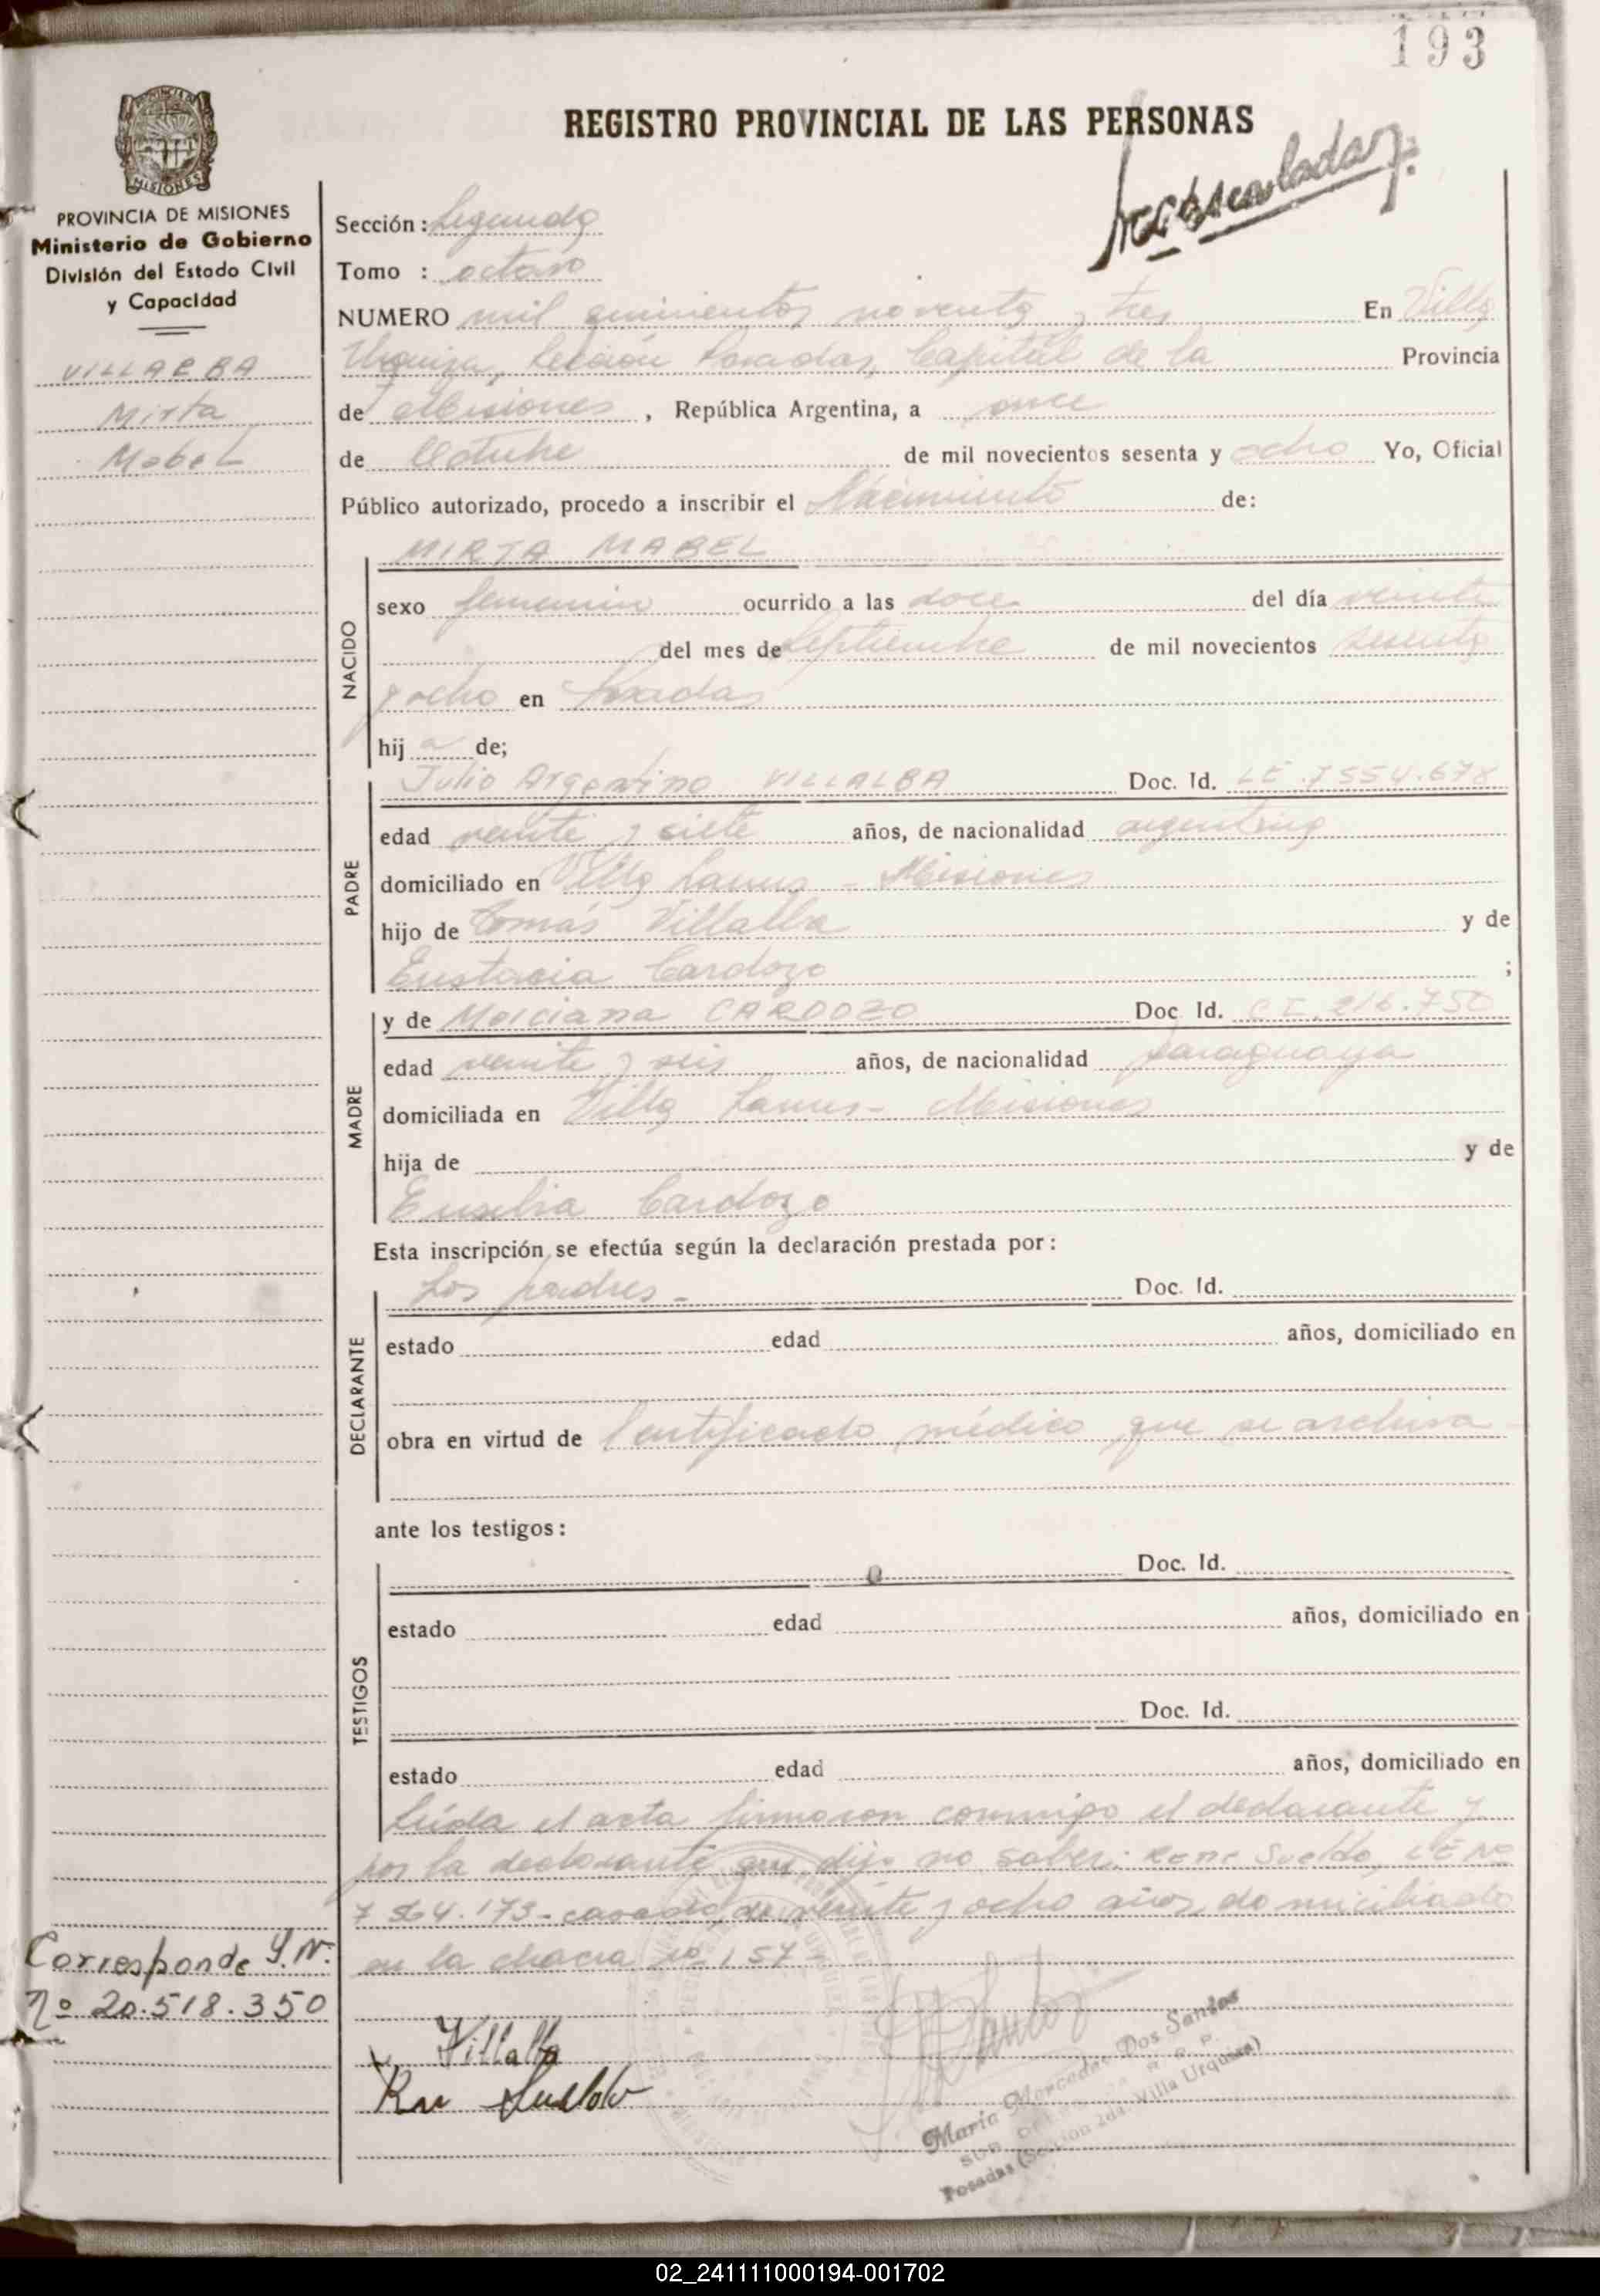 193
REGISTRO PROVINCIAL DE LAS PERSONAS
MISIONES
PROVINCIA DE MISIONES
Ministerio de Gobierno
División del Estado Civil
y Capacidad
VILLALBA
Mirta
Mabel
Sección: Segunda
Tomo : octavo
NUMERO mil quinientos noventa y tres En Villa
Urquiza, Sección Posadas, Capital de la Provincia
de Misiones, República Argentina, a once
de Octubre de mil novecientos sesenta y ocho Yo, Oficial
Público autorizado, procedo a inscribir el Nacimiento de:
NACIDO
MIRTA MABEL
sexo femenino ocurrido a las doce del día veinte
del mes de Septiembre de mil novecientos sesenta
y ocho en Posadas
hij a de;
PADRE
Julio Argentino VILLALBA Doc. Id. LE.7554.678
edad veinte y siete años, de nacionalidad argentina
domiciliado en Villa Lanus - Misiones
hijo de Tomás Villalba y de
Eustacia Cardozo ;
MADRE
y de Marciana CARDOZO Doc Id. CI.216.750
edad veinte y seis años, de nacionalidad paraguaya
domiciliada en Villa Lanus - Misiones
hija de y de
Cardozo
Esta inscripción se efectúa según la declaración prestada por:
DECLARANTE
Los padres - Doc. Id.
estado edad años, domiciliado en
obra en virtud de Certificado médico que se archiva
ante los testigos:
TESTIGOS
Doc. Id.
estado edad años, domiciliado en
Doc. Id.
estado edad años, domiciliado en
Leída el acta firmaron conmigo el declarante y
por la declarante que dijo no saber: Rene Sueldo, LE Nº
7 564.173 - casado, de veinte y ocho años, domiciliado
en la chacra nº 157 -
Corresponde
Nº 20.518.350
Villalba
Sueldo
María Mercedes Dos Santos
Posadas (Sección 2da. Villa Urquiza)
02_241111000194-001702